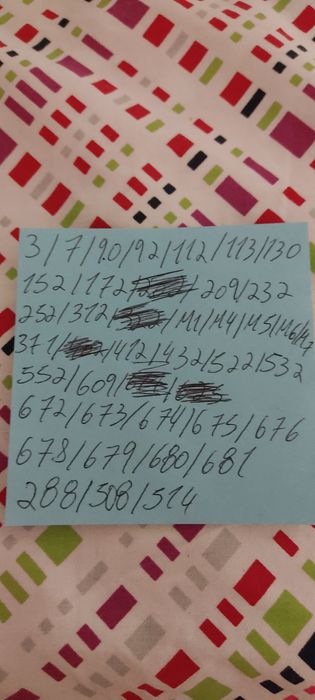 3/7/90/92/112/113/130
152/172/ /209/232
252/312/ /M1/M4/M5/M6/M7
371/ /412/432/522/532
552/609/ /
672/673/674/675/676
678/679/680/681
288/508/514